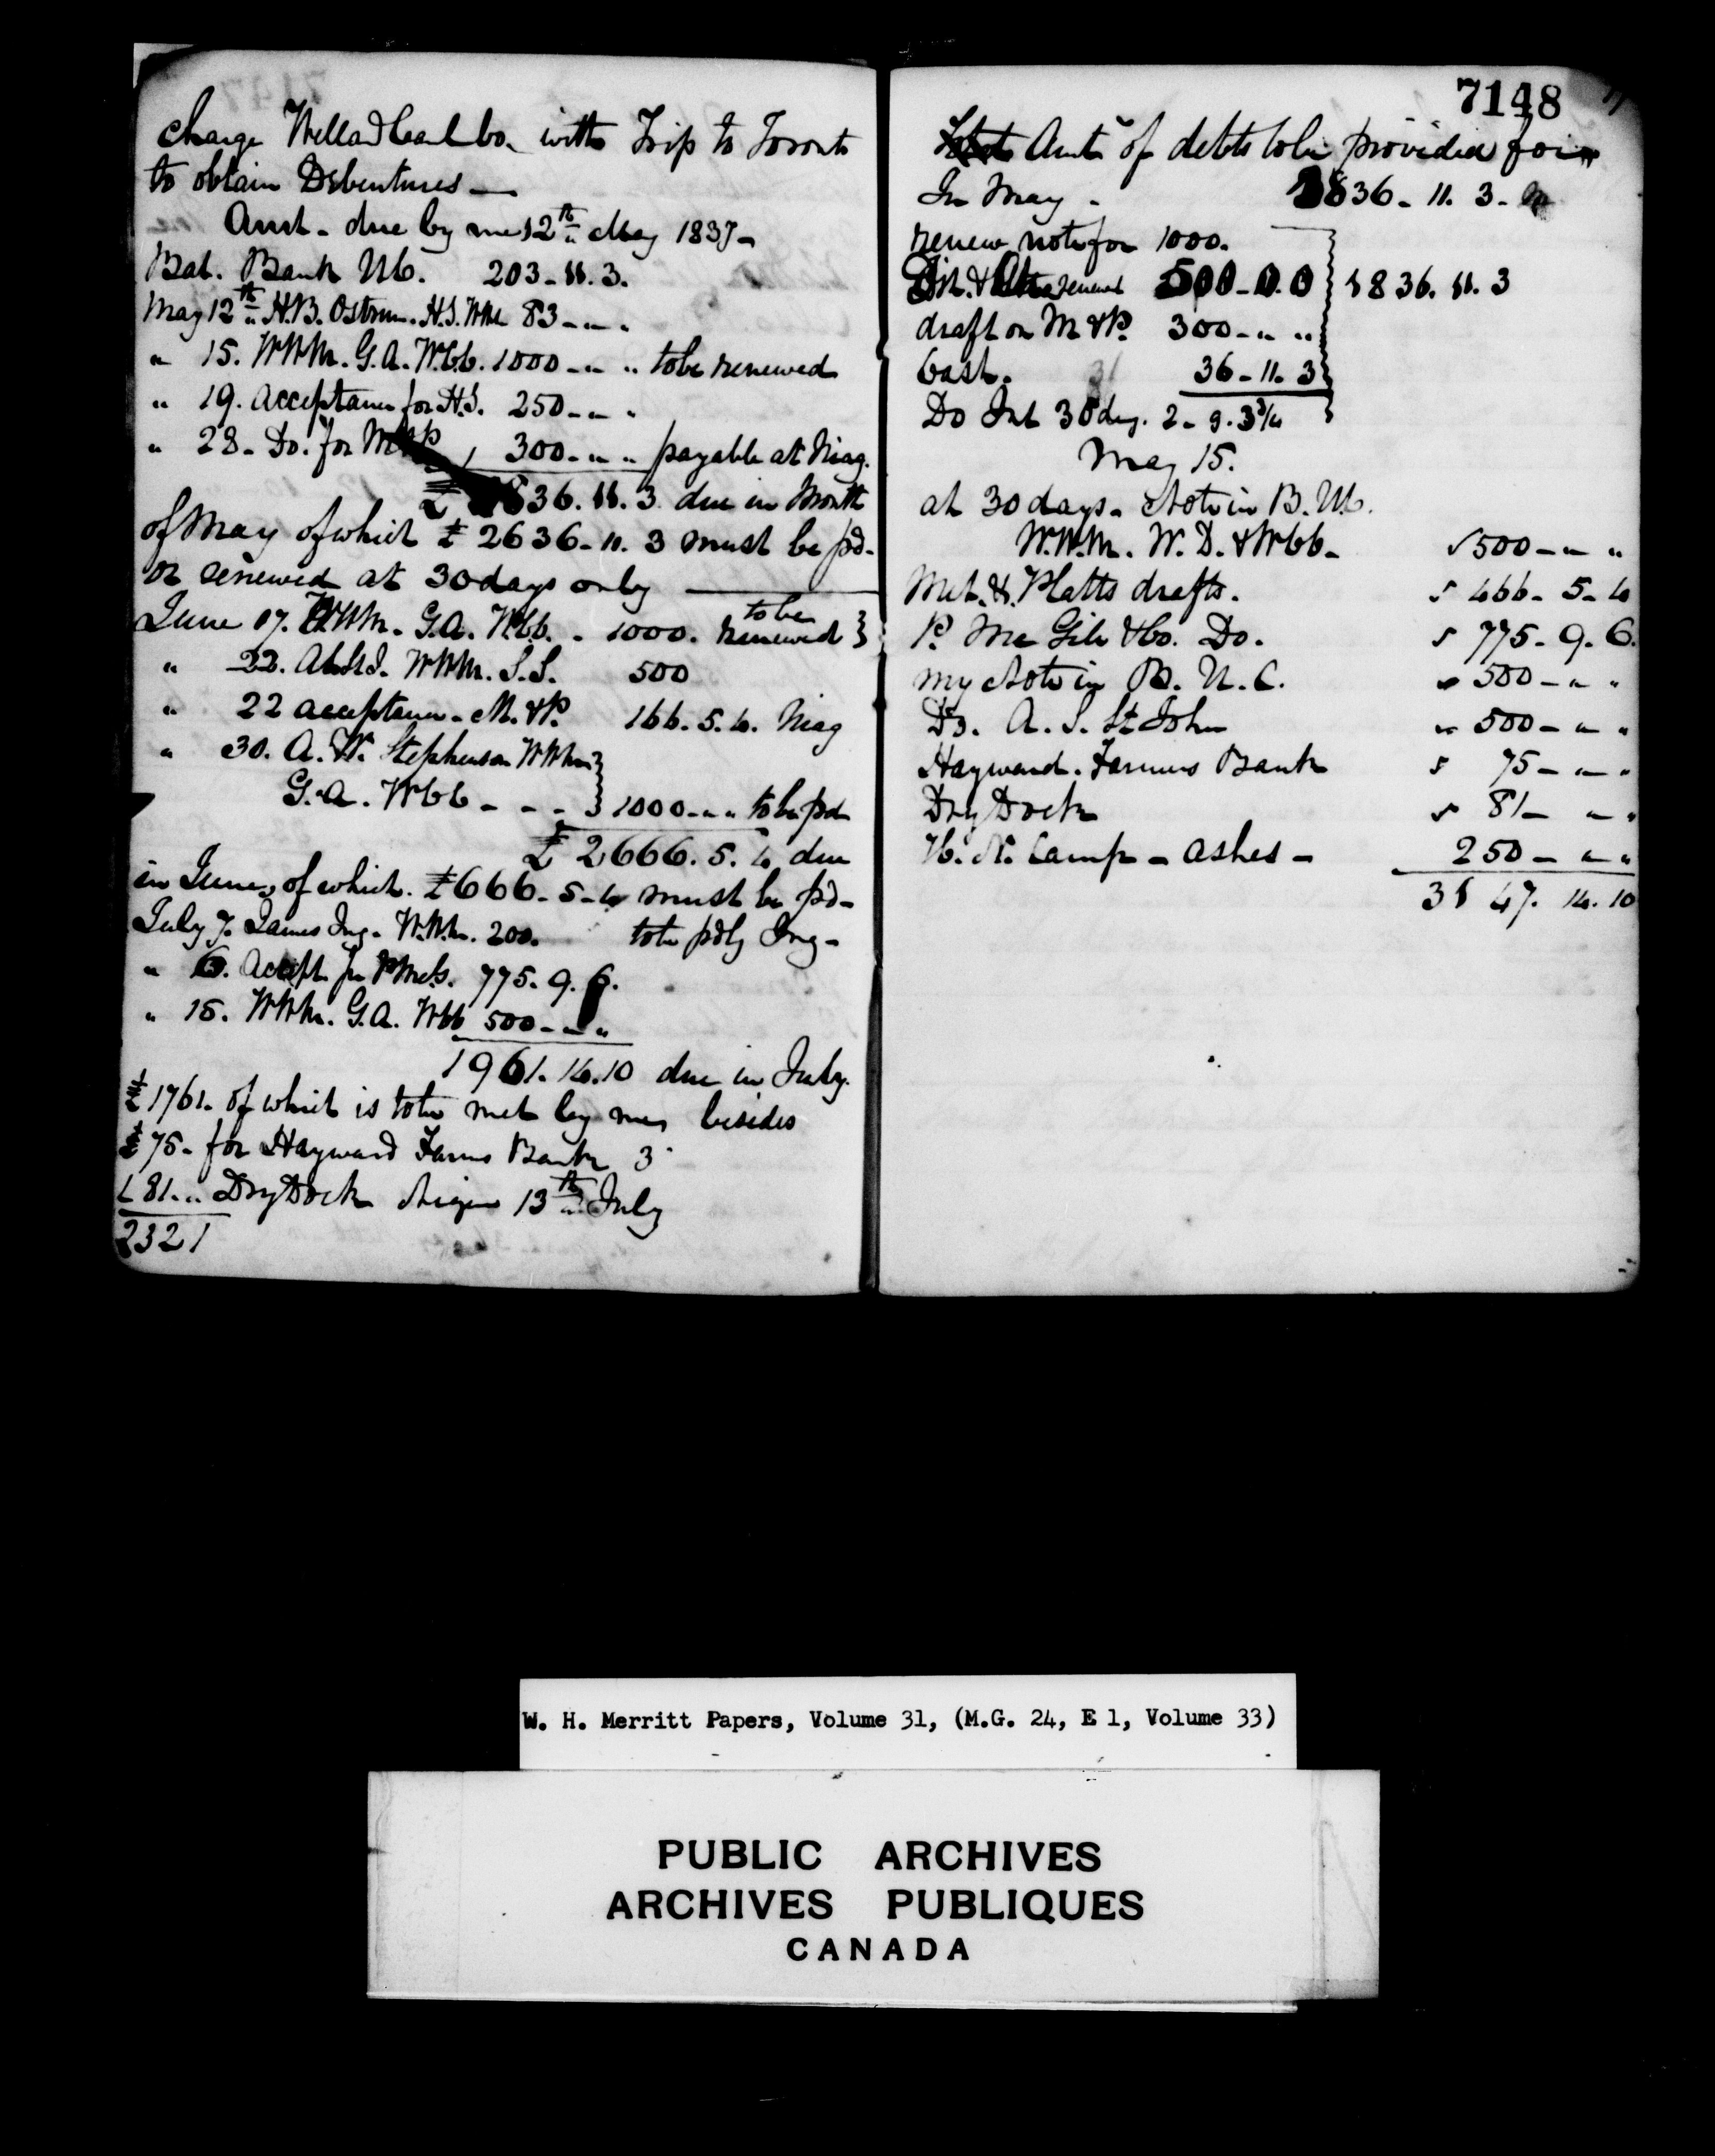 charge Welland Canl Co. with Trip to Toronto
to obtain Debentures —
Amt - due by me 12th May 1837 -
Bal. Bank U C. 203 - 11. 3.
May 12th H.B. Ostrum. H.S. WHM 83 - " "
" 15. WHM. G.A. W.CC. 1000 - " " to be renewed
" 19. acceptance for H.S. 250 - " "
" 28 - Do. for M & P 300 - " " payable at Niag.
£ 1836. 11. 3 due in Month
of May of which £ 2636 - 11. 3 must be pd -
or renewed at 30 days only
June 17. WHM. G.A. WCC. - 1000. to be renewed }
" 22. A.S.St.J. WHM. S.S. 500
" 22 acceptance - M. & P. 166. 5. 4. Niag
" 30. A. W. Stephenson WHM }
G. A. WCC - - - } 1000 - " " to be pd
£ 2666. 5. 4 due
in June, of which. £ 666 - 5 - 4 must be pd -
July 7. James Ing - W.H.M. 200. to be pd by Ing -
" 6. Accept for P McG. 775. 9. 6.
" 15. WHM. G.A. WCC 500 - " "
1961. 14. 10 due in July.
£ 1761. of which is to be met by me besides
£ 75 - for Hayward Farms Bank 3
£ 81 " " Dry Dock 13th July
2321
7148
Amt of debts to be provided for
In May - 1836 - 11. 3 -
renew note for 1000.
renewed 500 - 0. 0 } 1836. 11. 3
draft on M & P. 300 - " "
Cash. 36 - 11. 3
Do Int 30 day. 2 - 9. 3¼
May 15.
at 30 days - Note in B. U C.
W.H.M. W. D. & WCC - 500 - " "
Met. & Platts drafts. 466 - 5 - 4
P. McGill & Co. Do. 775 - 9. 6.
my Note in B. U. C. 500 - " "
Do. A. S. St John 500 - " "
Hayward. Farmers Bank 75 - " "
Dry Dock 81 - " "
H. N. Camp - ashes - 250 - " "
3147. 14. 10
W. H. Merritt Papers, Volume 31, (M.G. 24, E 1, Volume 33)
PUBLIC ARCHIVES
ARCHIVES PUBLIQUES
CANADA